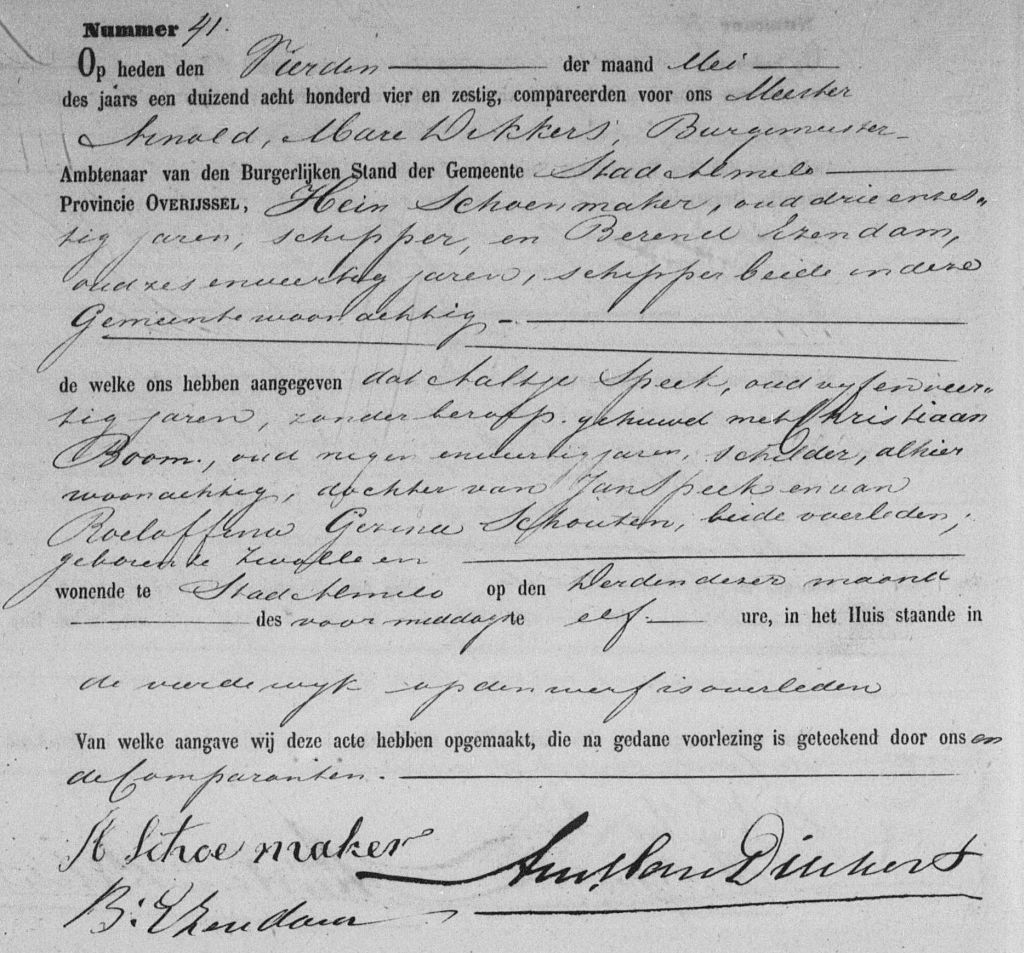 Nummer 41.
Op heden den Vierden der maand Mei
des jaars een duizend acht honderd vier en zestig, compareerden voor ons Meester
Arnold, Mare Dikkers, Burgemeester
Ambtenaar van den Burgerlijken Stand der Gemeente Stad Almelo
Provincie OVERIJSSEL, Hein Schoenmaker, oud drie en zes„
tig jaren, schipper, en Berend Ezendam,
oud zes en veertig jaren, schipper beide in deze
Gemeente woonachtig
de welke ons hebben aangegeven dat Aaltje Speek, oud vyf en veer„
tig jaren, zonder beroep, gehuwd met Christiaan
Boom, oud negen en veertig jaren, schilder, alhier
woonachtig, dochter van Jan Speek en van
Roeloffina Gezina Schouten, beide overleden,
geboren te Zwolle en
wonende te Stad Almelo op den Derden dezer maand
des voor middags te elf ure, in het Huis staande in
de vierde wyk op den werf is overleden
Van welke aangave wij deze acte hebben opgemaakt, die na gedane voorlezing is geteekend door ons en
de Comparanten.
H Schoemaker
B: Ezendam